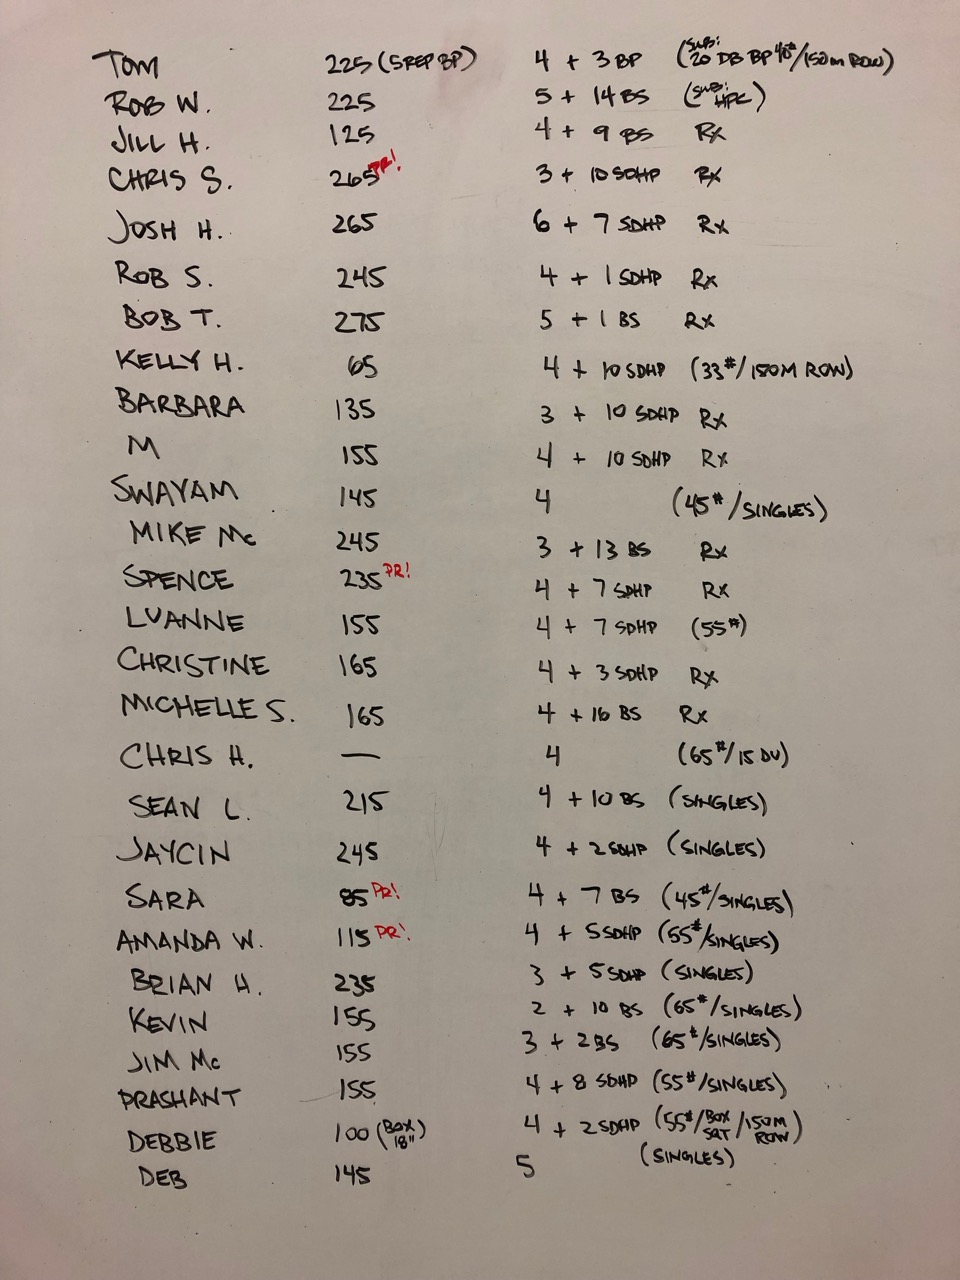 TOM 225 (5REP BP) 4 + 3 BP (SUB: 20 DB BP 40#/150m ROW)
ROB W. 225 5 + 14 BS (SUB: HPC)
JILL H. 125 4 + 9 BS Rx
CHRIS S. 265 PR! 3 + 10 SDHP Rx
JOSH H. 265 6 + 7 SDHP Rx
ROB S. 245 4 + 1 SDHP Rx
BOB T. 275 5 + 1 BS Rx
KELLY H. 65 4 + 10 SDHP (33#/150M ROW)
BARBARA 135 3 + 10 SDHP Rx
M 155 4 + 10 SDHP Rx
SWAYAM 145 4 (45#/SINGLES)
MIKE Mc 245 3 + 13 BS Rx
SPENCE 235 PR! 4 + 7 SDHP Rx
LUANNE 155 4 + 7 SDHP (55#)
CHRISTINE 165 4 + 3 SDHP Rx
MICHELLE S. 165 4 + 16 BS Rx
CHRIS H. — 4 (65#/15 DU)
SEAN L. 215 4 + 10 BS (SINGLES)
JAYCIN 245 4 + 2 SDHP (SINGLES)
SARA 85 PR! 4 + 7 BS (45#/SINGLES)
AMANDA W. 115 PR! 4 + 5 SDHP (55#/SINGLES)
BRIAN H. 235 3 + 5 SDHP (SINGLES)
KEVIN 155 2 + 10 BS (65#/SINGLES)
JIM Mc 155 3 + 2 BS (65#/SINGLES)
PRASHANT 155 4 + 8 SDHP (55#/SINGLES)
DEBBIE 100 (BOX 18") 4 + 2 SDHP (55#/BOX SQT/150M ROW)
DEB 145 5 (SINGLES)